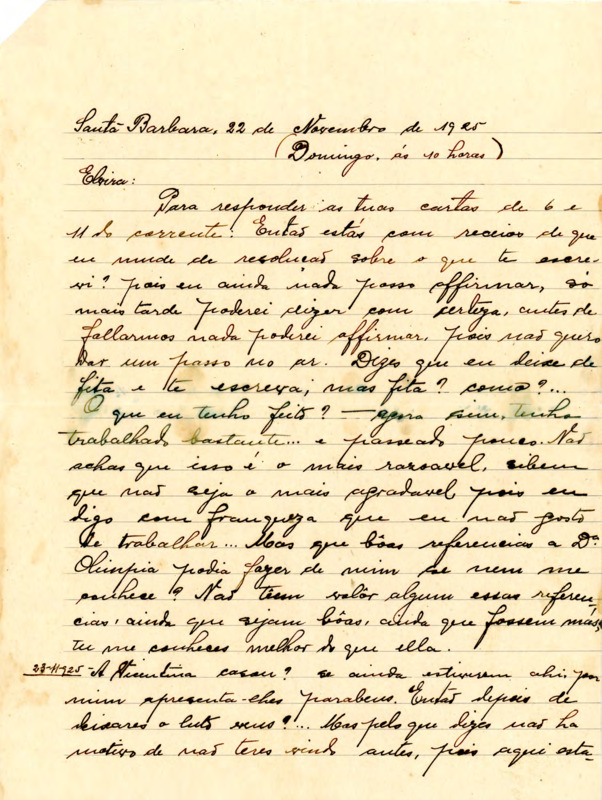 Santa Barbara, 22 de Novembro de 1925
(Domingo, ás 10 horas)
Elvira:
Para responder as tuas cartas de 6 e
11 do corrente: Entaõ estás com receio de que
eu mude de resoluçaõ sobre o que te escre-
vi? pois eu ainda nada posso affirmar, só
mais tarde poderei dizer com certeza, antes de
fallarmos nada poderei affirmar, pois naõ quero
dar um passo no ar. Dizes que eu deixe de
fita e te escreva; mas fita? como?...
O que eu tenho feito? — agora sim, tenho
trabalhado bastante... e passeado pouco. Naõ
achas que isso é o mais razoavel, sibem
que naõ seja o mais agradavel pois eu
digo com franqueza que eu naõ gosto
de trabalhar... Mas que bôas referencias a Dª
Olimpia podia fazer de mim se nem me
conhece? Naõ tem valôr algum essas referên-
cias, ainda que sejam bôas, ainda que fossem más,
tu me conheces melhor do que ella.
23-11-925 - A Vicentina casou? se ainda estiverem ahi, por
mim apresenta-lhes parabens. Entaõ depois de
deixares o luto vens?... Mas pelo que dizes naõ ha
motivo de naõ teres vindo antes, pois aqui esta-